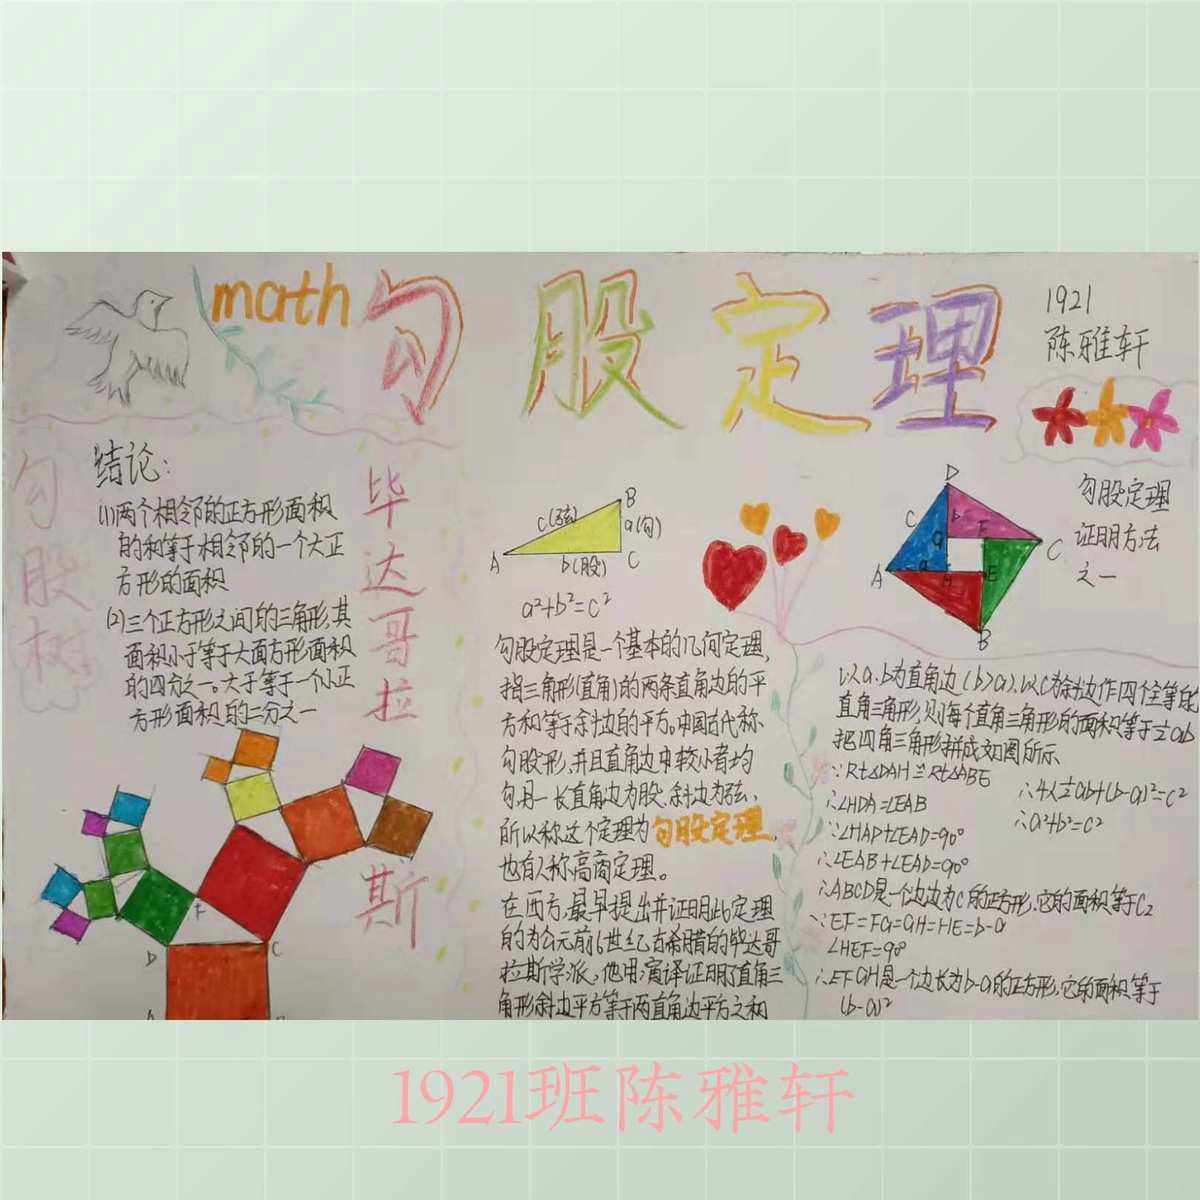 math
勾股定理
1921
陈雅轩
勾股树
结论:
(1)两个相邻的正方形面积
的和等于相邻的一个大正
方形的面积
(2)三个正方形之间的三角形,其
面积小于等于大面方形面积
的四分之一。大于等于一个小正
方形面积的二分之一
毕达哥拉斯
F
D
C
c(弦)
B
a(勾)
A
b(股)
C
a²+b²=c²
勾股定理是一个基本的几何定理,
指三角形(直角)的两条直角边的平
方和等于斜边的平方。中国古代称
勾股形,并且直角边中较小者均
勾,另一长直角边为股,斜边为弦,
所以称这个定理为勾股定理,
也有人称高商定理。
在西方,最早提出并证明此定理
的为公元前6世纪古希腊的毕达哥
拉斯学派,他用演译证明了直角三
角形斜边平方等于两直角边平方之和
D
C
b
F
a
C
A
a
H
E
B
勾股定理
证明方法
之一
以a.b为直角边(b>a),以C为斜边作四个全等的
直角三角形,则每个直角三角形的面积等于½ab
把四角三角形拼成如图所示
∵Rt△DAH≌Rt△ABE
∴∠HDA=∠EAB
∵∠HAD+∠EAD=90°
∴∠EAB+∠EAD=90°
∴ABCD是一个边边为C的正方形,它的面积等于C2
∵EF=FG=GH=HE=b-a
∠HEF=90°
∴EFGH是一个边长为b-a的正方形,它的面积等于
(b-a)²
∴4×½ab+(b-a)²=c²
∴a²+b²=c²
1921班陈雅轩